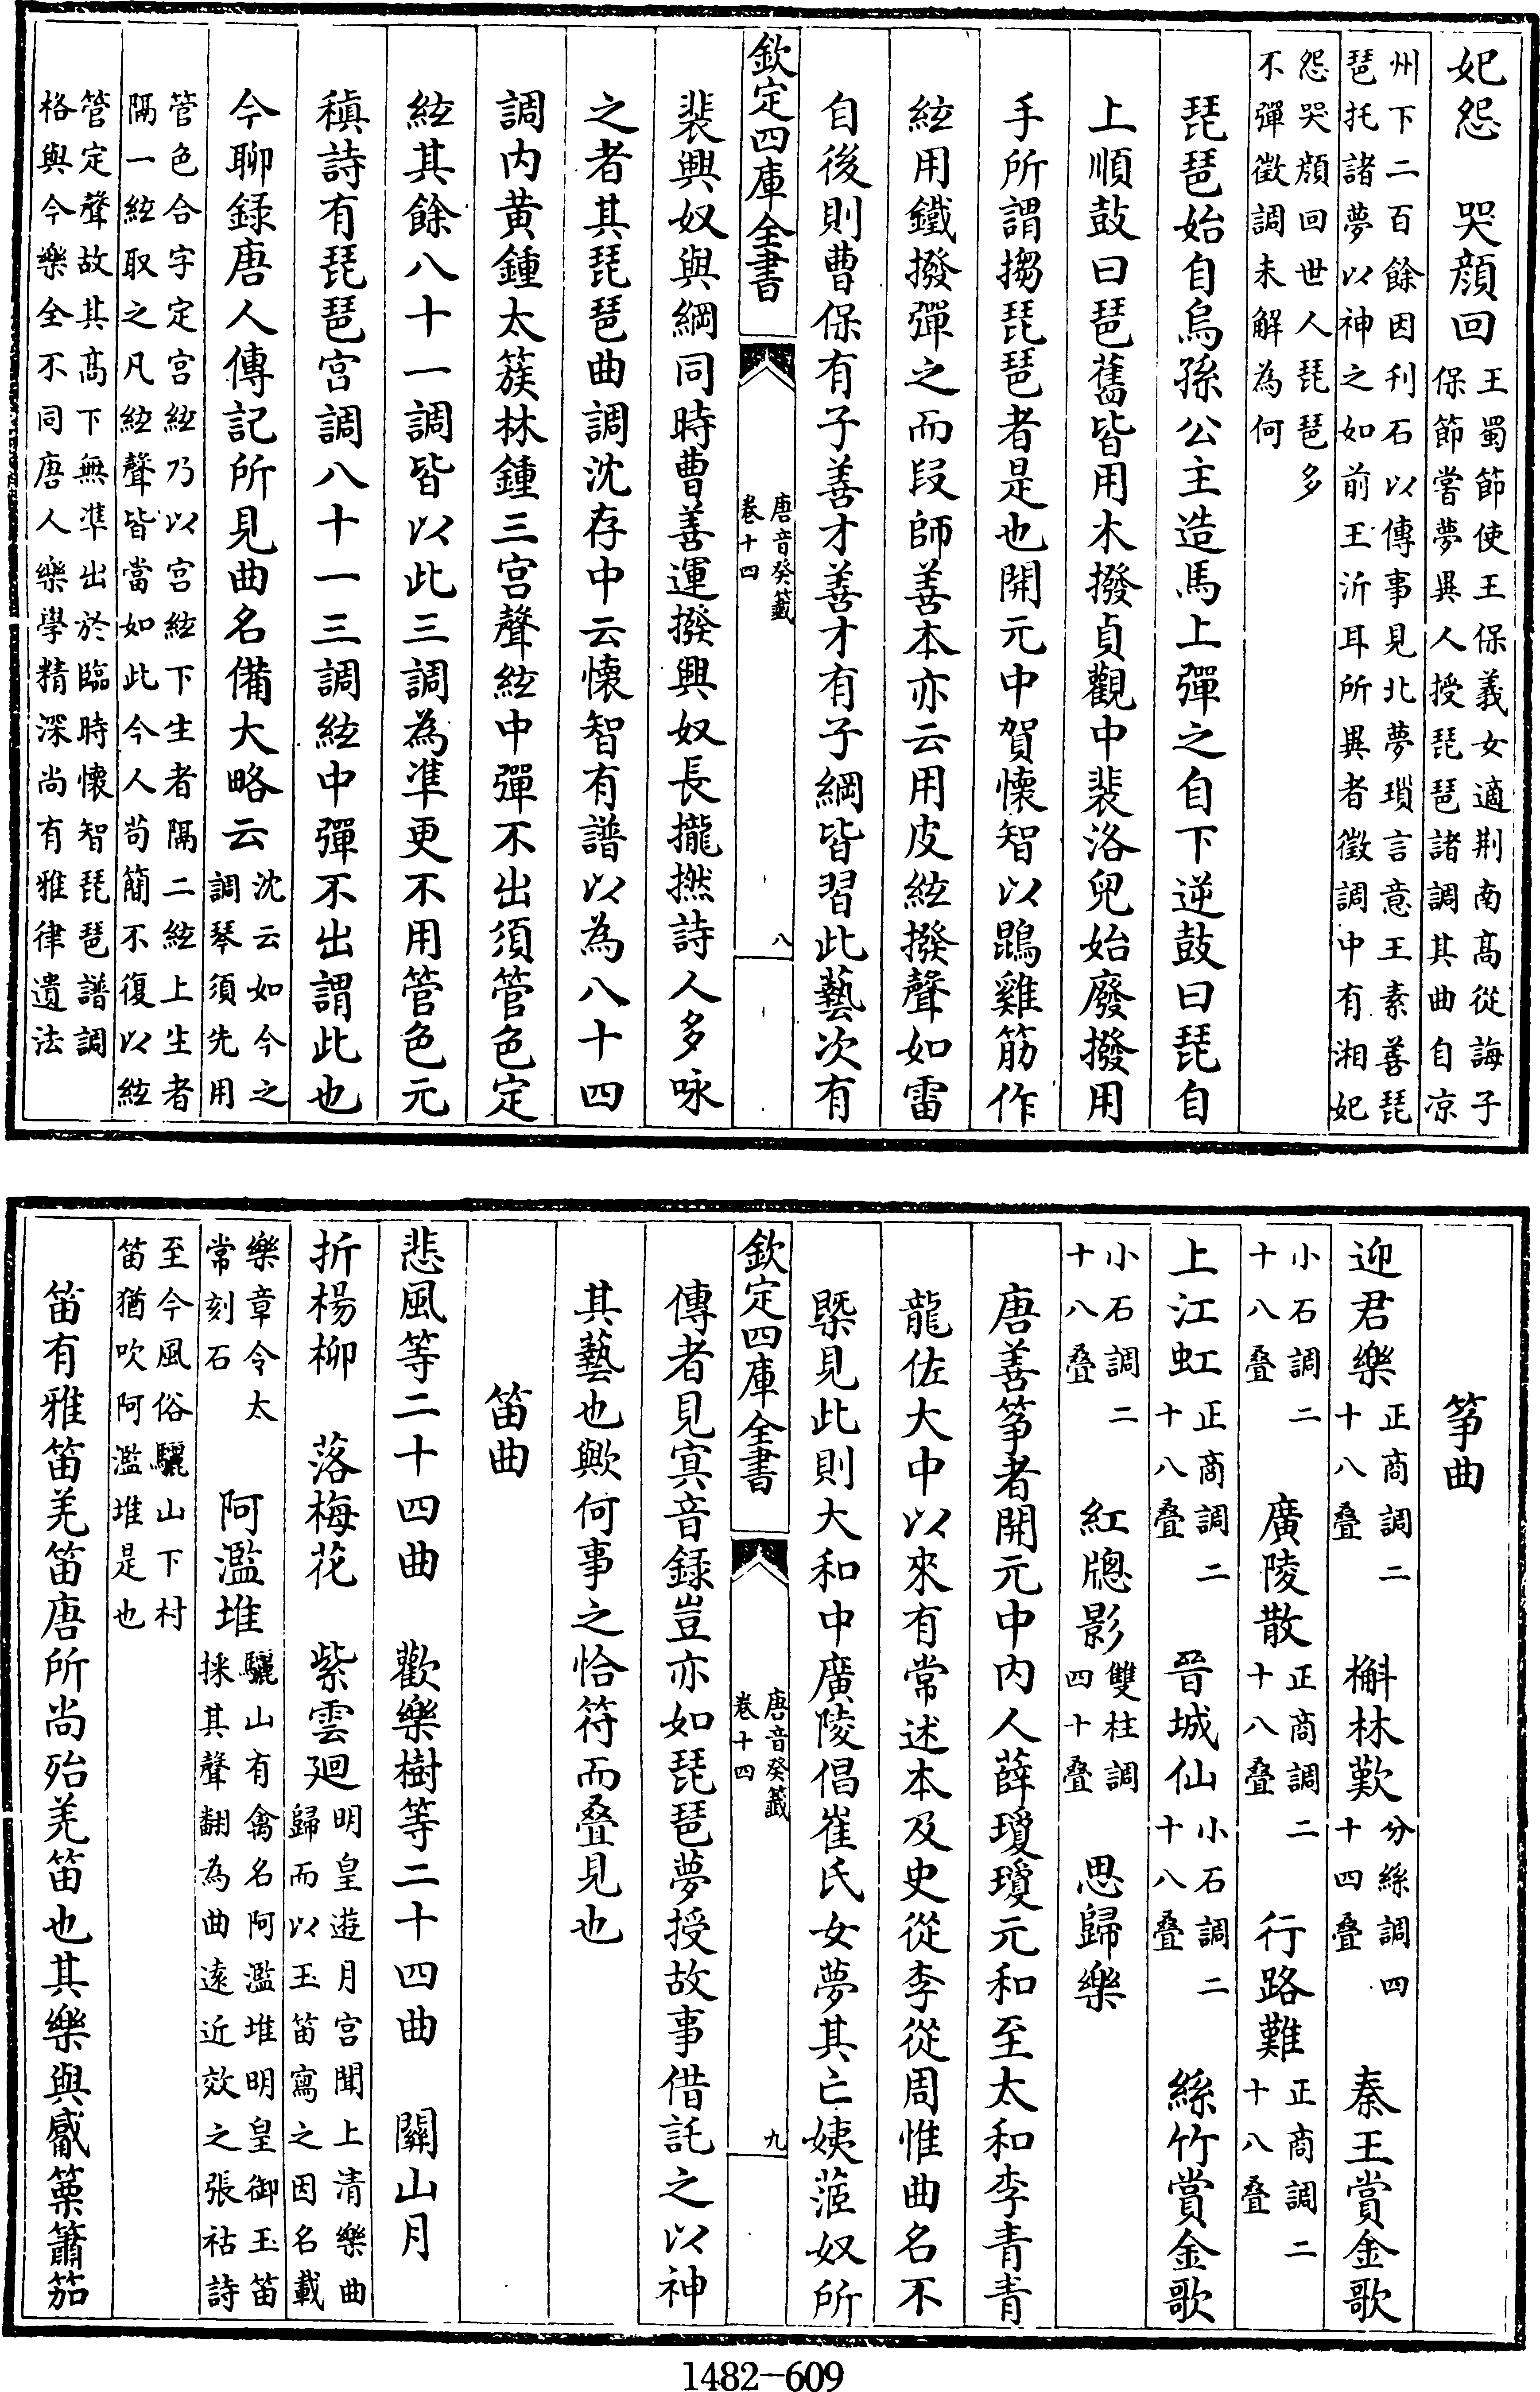 妃怨　哭顔回王蜀節使王保義女適荆南髙從誨子
保節嘗夢異人授琵琶諸調其曲自凉
州下二百餘因刋石以傳事見北夢瑣言意王素善琵
琶托諸夢以神之如前王沂耳所異者徵調中有湘妃
怨哭顔回世人琵琶多
不彈徵調未解為何
琵琶始自烏孫公主造馬上彈之自下逆鼓曰琵自
上順鼓曰琶舊皆用木撥貞觀中裴洛兒始廢撥用
手所謂搊琵琶者是也開元中賀懐智以鵾雞筋作
絃用鐵撥彈之而段師善本亦云用皮絃撥聲如雷
自後則曹保有子善才善才有子綱皆習此藝次有
欽定四庫全書
唐音癸籖
卷十四
八
裴興奴與綱同時曹善運撥興奴長攏撚詩人多咏
之者其琵琶曲調沈存中云懐智有譜以為八十四
調内黄鍾太簇林鍾三宫聲絃中彈不出須管色定
絃其餘八十一調皆以此三調為凖更不用管色元
稹詩有琵琶宫調八十一三調絃中彈不出謂此也
今聊録唐人傳記所見曲名備大略云沈云如今之
調琴須先用
管色合字定宫絃乃以宫絃下生者隔二絃上生者
隔一絃取之凡絃聲皆當如此今人苟簡不復以絃
管定聲故其髙下無凖出於臨時懐智琵琶譜調
格與今樂全不同唐人樂學精深尚有雅律遺法
筝曲
迎君樂正商調二
十八叠　槲林歎分絲調四
十四叠　秦王賞金歌
小石調二
十八叠　廣陵散正商調二
十八叠　行路難正商調二
十八叠
上江虹正商調二
十八叠　晉城仙小石調二
十八叠　絲竹賞金歌
小石調二
十八叠　紅牕影雙柱調
四十叠　思歸樂
唐善筝者開元中内人薛瓊瓊元和至太和李青青
龍佐大中以來有常述本及史從李從周惟曲名不
槩見此則大和中廣陵倡崔氏女夢其亡姨蒞奴所
欽定四庫全書
唐音癸籖
卷十四
九
傳者見㝠音録豈亦如琵琶夢授故事借託之以神
其藝也歟何事之恰符而叠見也
笛曲
悲風等二十四曲　歡樂樹等二十四曲　關山月
折楊柳　落梅花　紫雲廻明皇遊月宫聞上清樂曲
歸而以玉笛寫之因名載
樂章令太
常刻石　阿濫堆驪山有禽名阿濫堆明皇御玉笛
採其聲翻為曲逺近效之張祜詩
至今風俗驪山下村
笛猶吹阿濫堆是也
笛有雅笛羌笛唐所尚殆羌笛也其樂與觱篥簫笳
1482—609